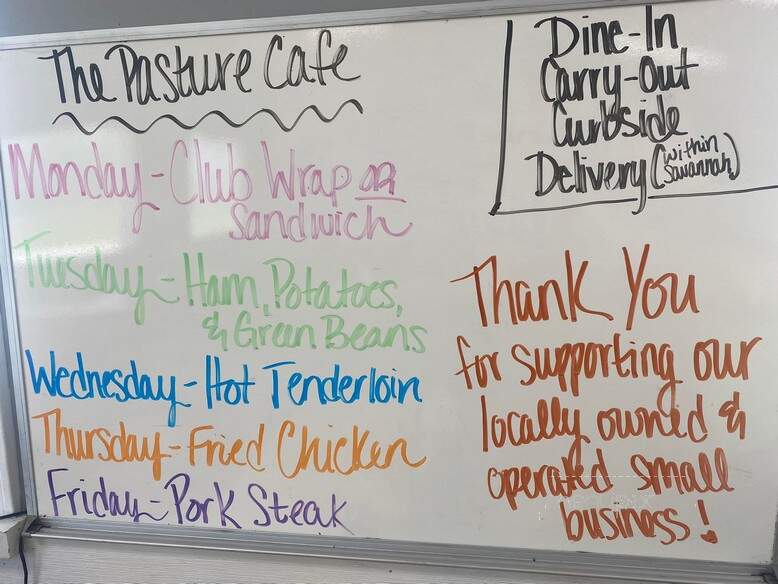 The Pasture Cafe
Monday - Club Wrap or
Sandwich
Tuesday - Ham, Potatoes,
& Green Beans
Wednesday - Hot Tenderloin
Thursday - Fried Chicken
Friday - Pork Steak
Dine-In
Carry-Out
Curbside
Delivery (within
Savannah)
Thank You
for supporting our
locally owned &
operated small
business!